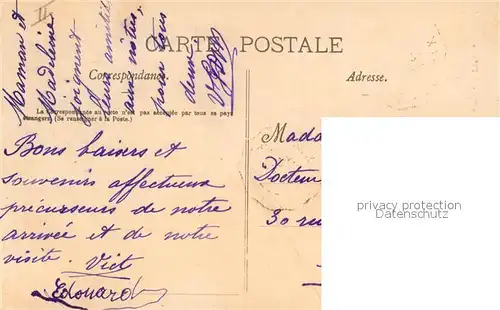 CARTE POSTALE
Correspondance.
Adresse.
La Correspondance au recto n'est pas acceptée par tous les pays
étrangers. (Se renseigner à la Poste.)
Maman et
Madeleine
joignent
leurs amitiés
aux nôtres,
pour tous
deux
Bons baisers et
souvenirs affectueux
précurseurs de notre
arrivée et de notre
visite. Vict
Edouard
Mada
Docteur
30 ru
privacy protection
Datenschutz